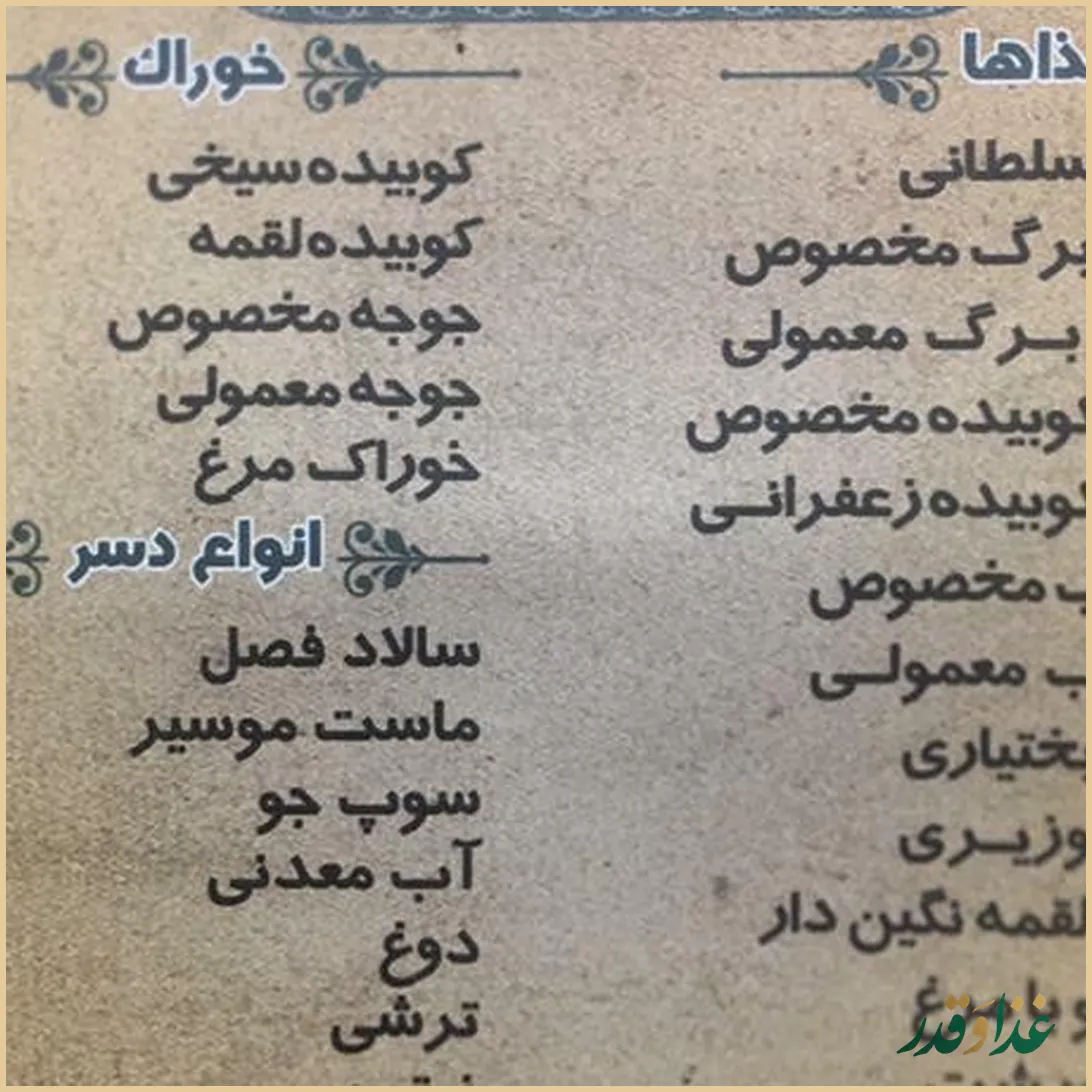 سلطانی
برگ مخصوص
برگ معمولی
مخصوص
زعفرانی
مخصوص
معمولی
وزیری
لقمه نگین دار
با مرغ
خوراک
کوبیده سیخی
کوبیده لقمه
جوجه مخصوص
جوجه معمولی
خوراک مرغ
انواع دسر
سالاد فصل
ماست موسیر
سوپ جو
آب معدنی
دوغ
ترشی
غذا و قدر